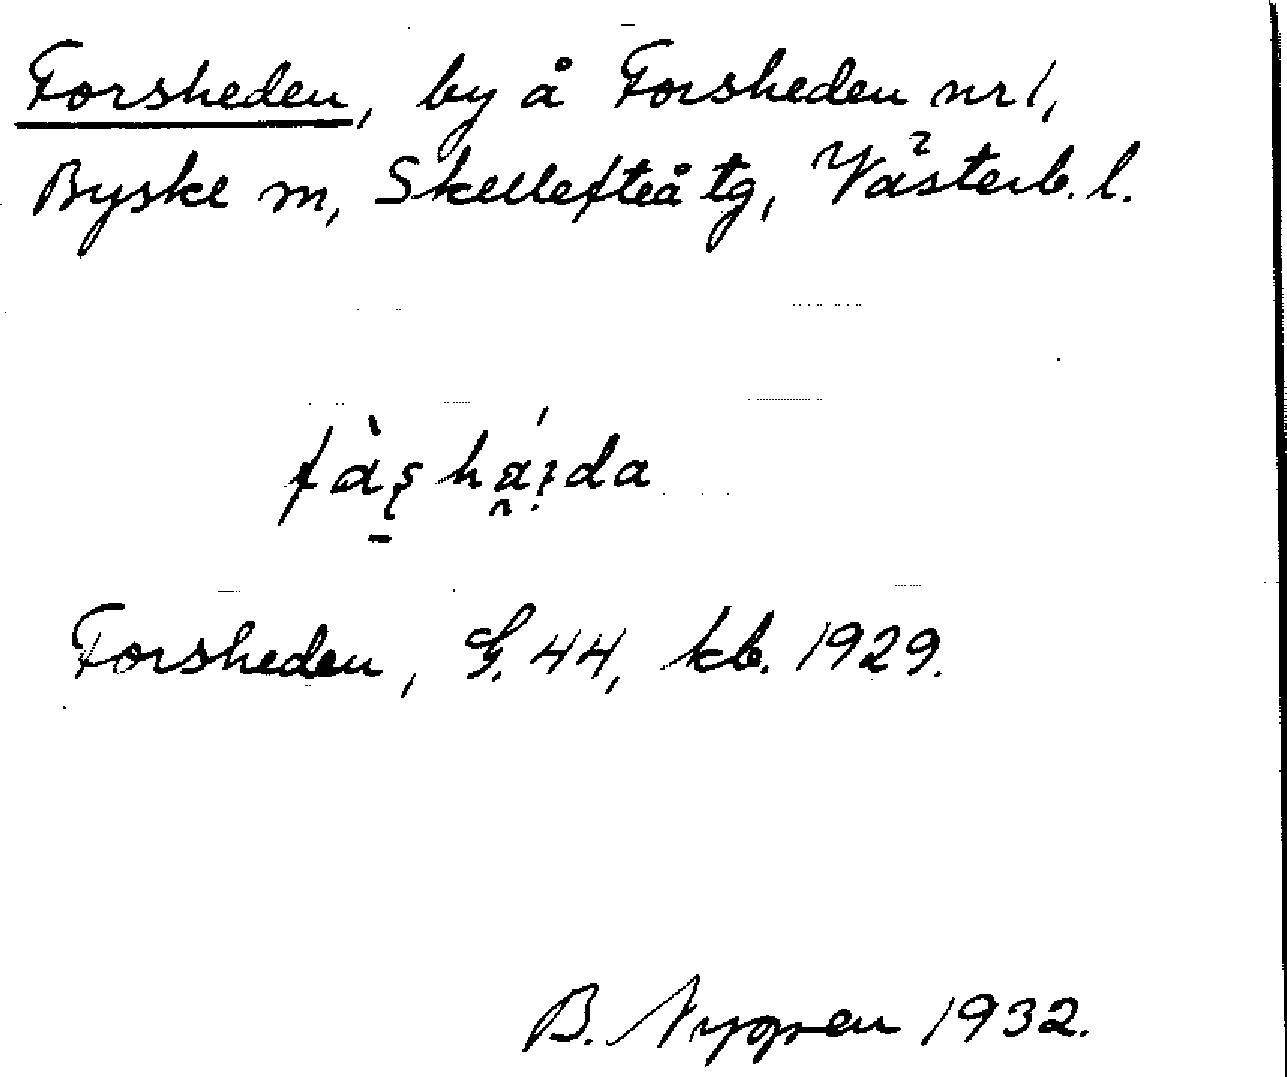 Forsheden, by å Forsheden nr 1,
Byske sn, Skellefteå tg, Västerb. l.
Forsheden, G. 44, kb. 1929.
B. Nygren 1932.